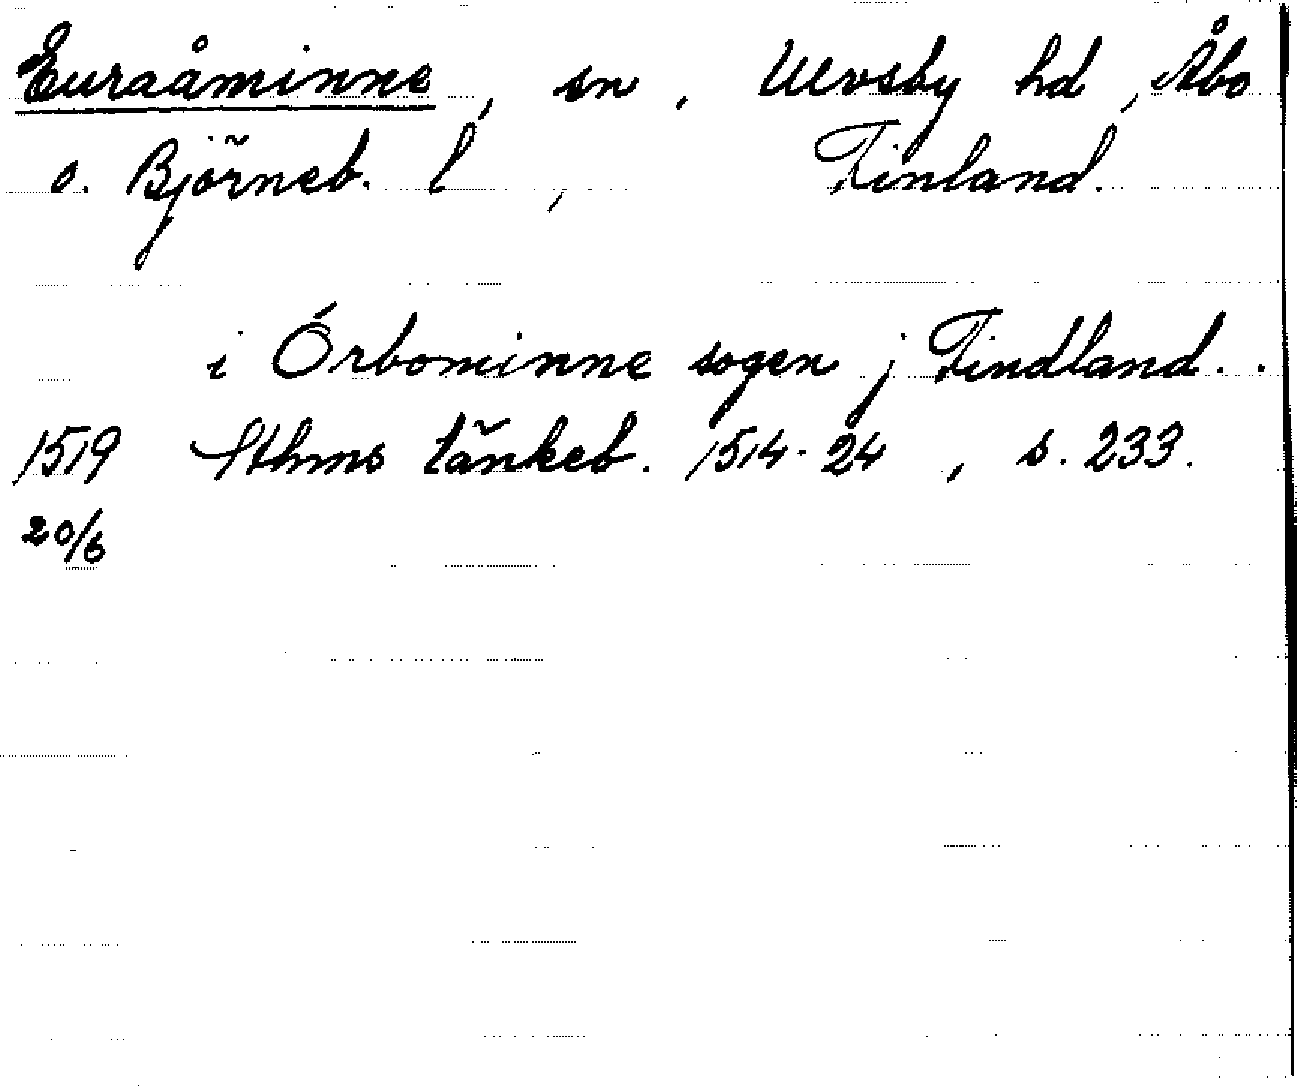 Euraåminne, sn, Ulvsby hd, Åbo
o. Björneb. l, Finland.
i Órbominne sogen j Findland. .
1519 Sthms tänkeb. 1514-24, s. 233.
20/6